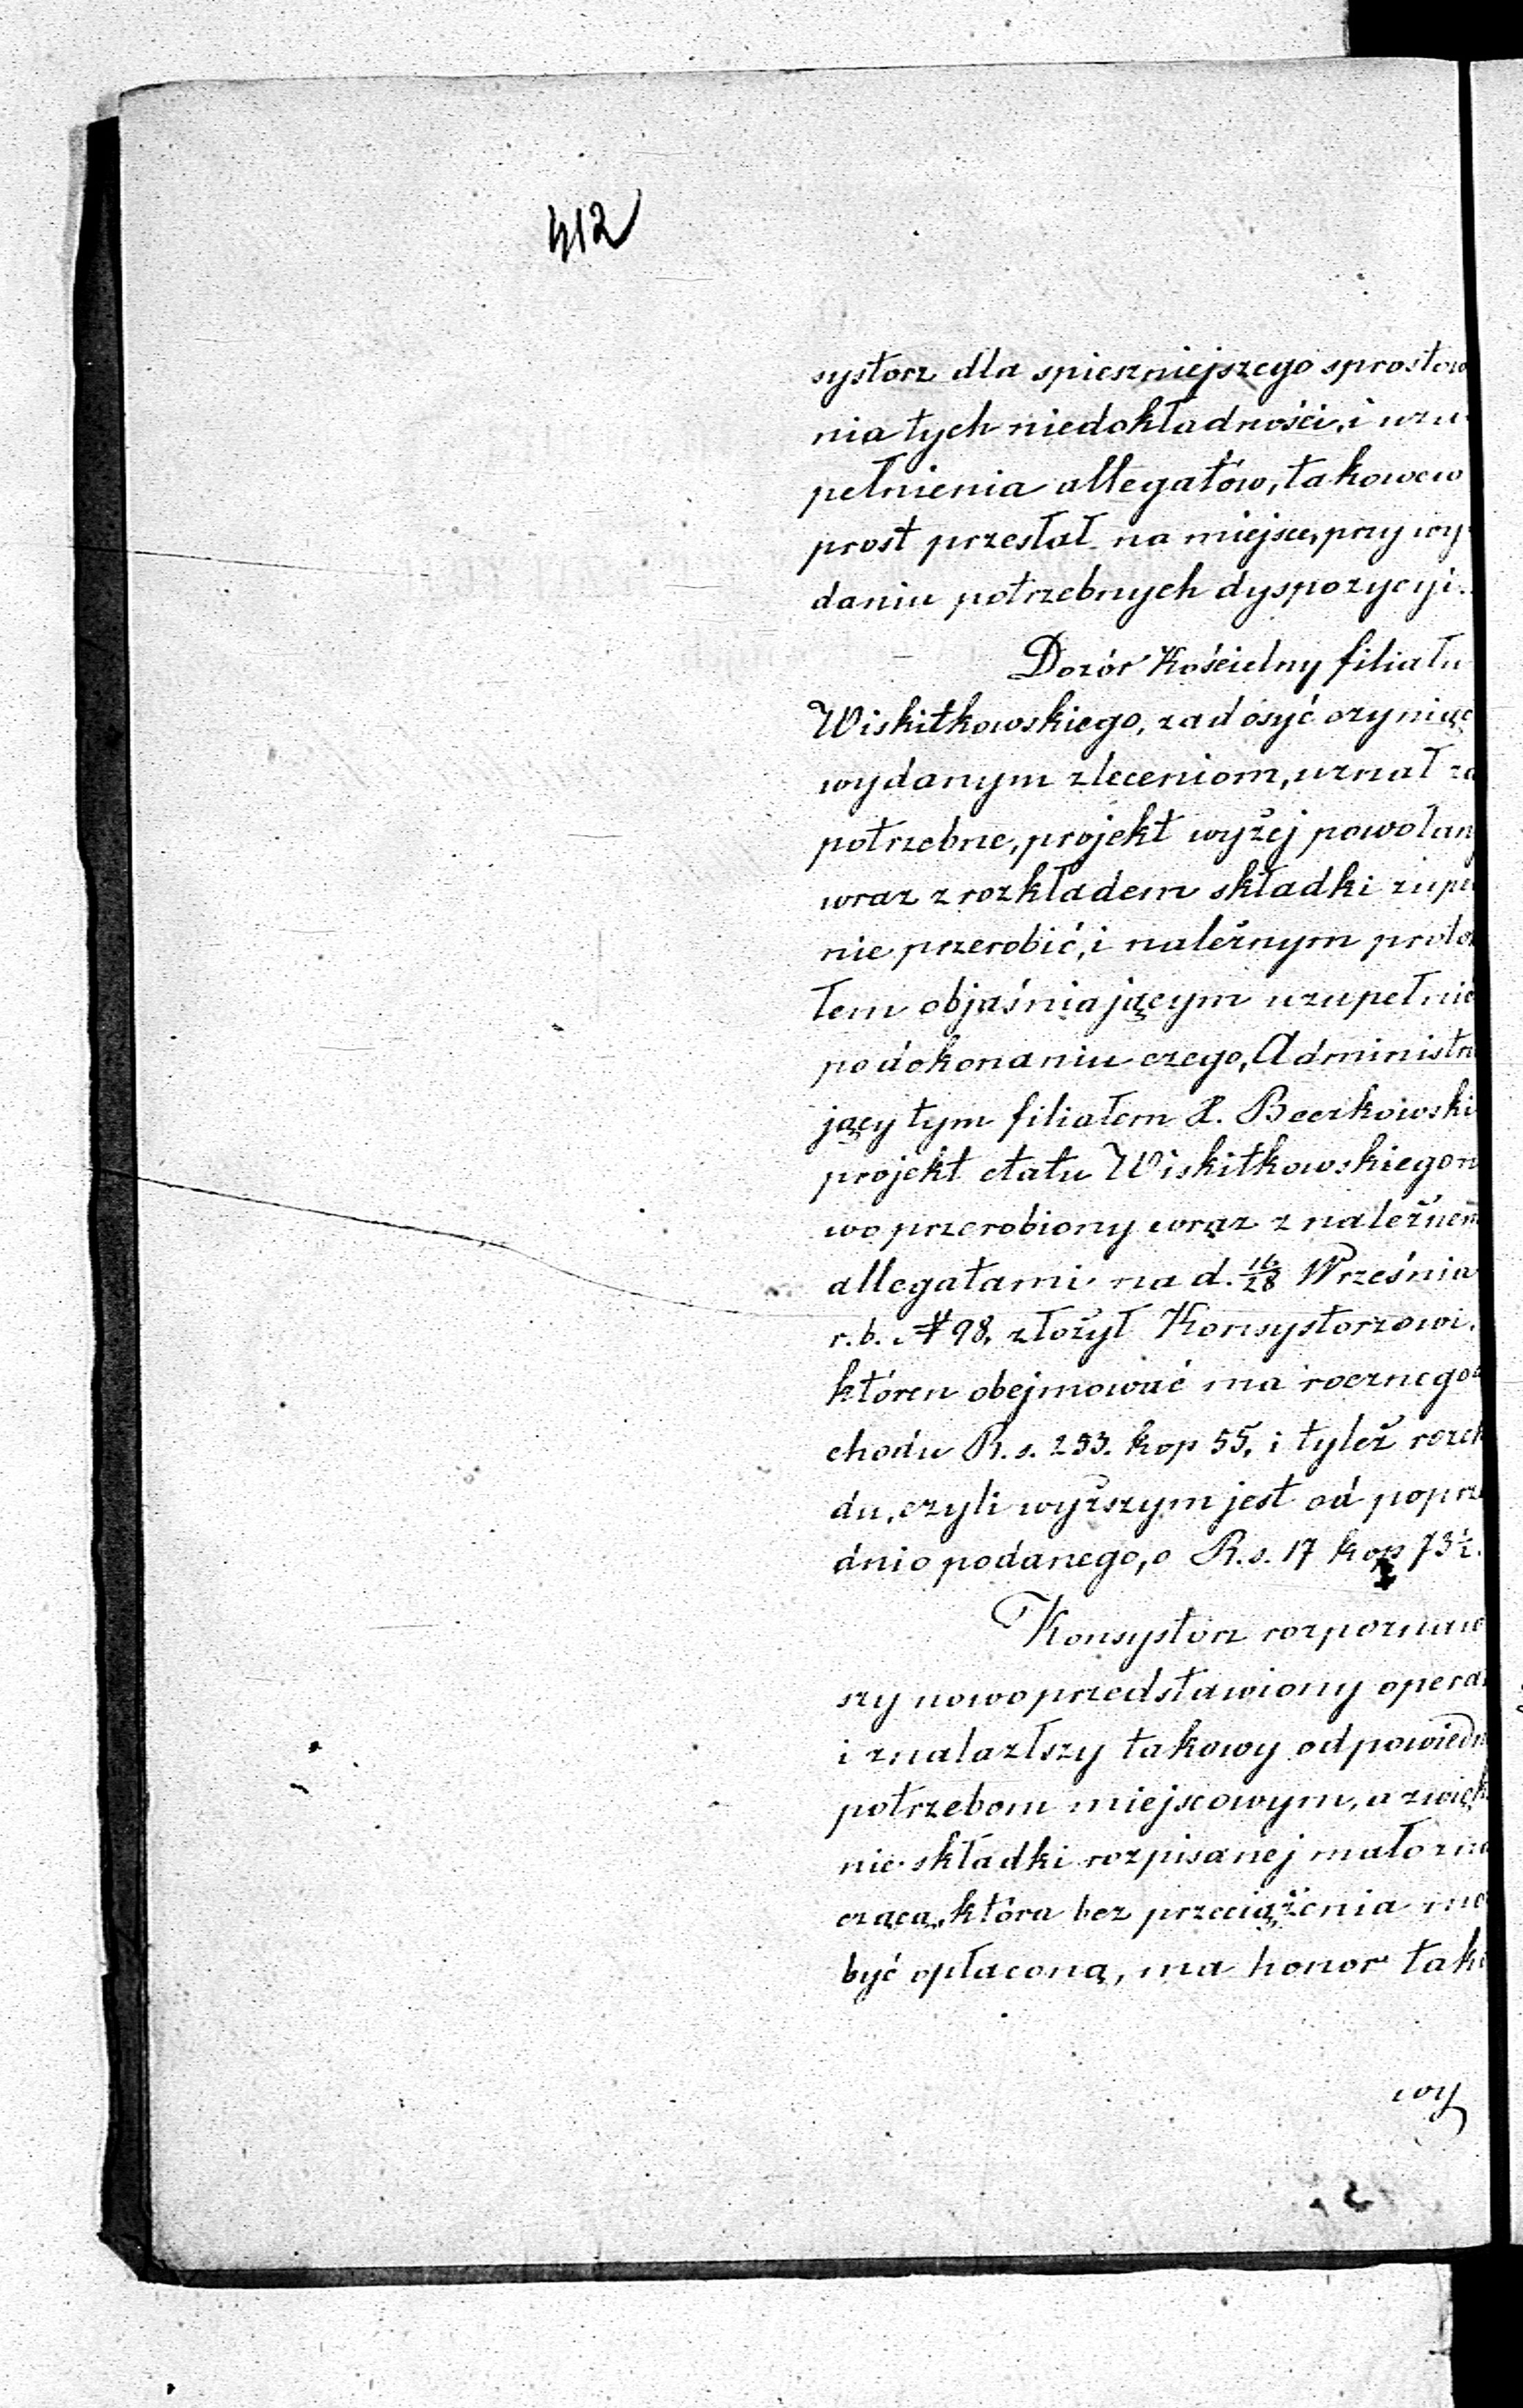 412
systorz dla spieszniejszego sprostow
nia tych niedokładności, i uzu-
pełnienia allegatów, takowe w
prost przesłał na miejsce, przy wy-
daniu potrzebnych dyspozycyi.
Dozór Kościelny filiału
Wiskitkowskiego, zadosyć czyniąc
wydanym zleceniom, uznał za
potrzebne, projekt wyżej powołany
wraz z rozkładem składki zupe
nie przerobić, i należnym proto
łem objaśniającym uzupełnić
po dokonaniu czego, Administr
jący tym filiałem X. Beczkowski
projekt etatu Wiskitkowskiego n
wo przerobiony wraz z należnem
allegatami na d. 16/28 Września
r. b. № 98, złożył Konsystorzowi,
któren obejmować ma rocznego
chodu R. s. 253. kop 55, i tyleż rozch
du, czyli wyższym jest od poprze
dnio podanego, o R. s. 17 kop 73½.
Konsystorz rozpoznaw
szy nowo przedstawiony opera
i znalazłszy takowy odpowiedn
potrzebom miejscowym, a zwięk
nie składki rozpisanej mało zna
czącą, która bez przeciążenia mo
być opłaconą, ma honor tako
wy